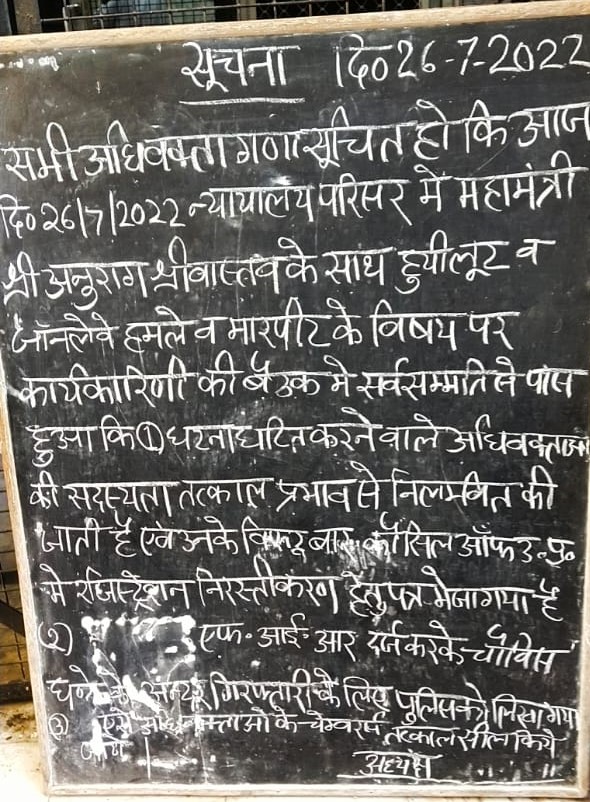 सूचना दि० 26-7-2022
सभी अधिवक्ता गण सूचित हो कि आज
दि० 26/7/2022 न्यायालय परिसर में महामंत्री
श्री अनुराग श्रीवास्तव के साथ हुयी लूट व
जॉनलेवे हमले व मारपीट के विषय पर
कार्यकारिणी की बैठक मे सर्वसम्मति से पास
हुआ कि ① घटना घटित करने वाले अधिवक्ताजन
की सदस्यता तत्काल प्रभाव से निलम्बित की
जाती है एवं उनके विरूद्ध बार कौंसिल ऑफ उ.प्र.
मे रजिस्ट्रेशन निरस्तीकरण हेतु पत्र भेजा गया है
(२) एफ. आई. आर दर्ज करके चौबिस
घण्टे के अन्दर गिरफ्तारी के लिए पुलिस को लिखा गया
③ ऐसे अधिवक्ताओ के चेम्बर्स तत्काल सील किये
जाय
अध्यक्ष